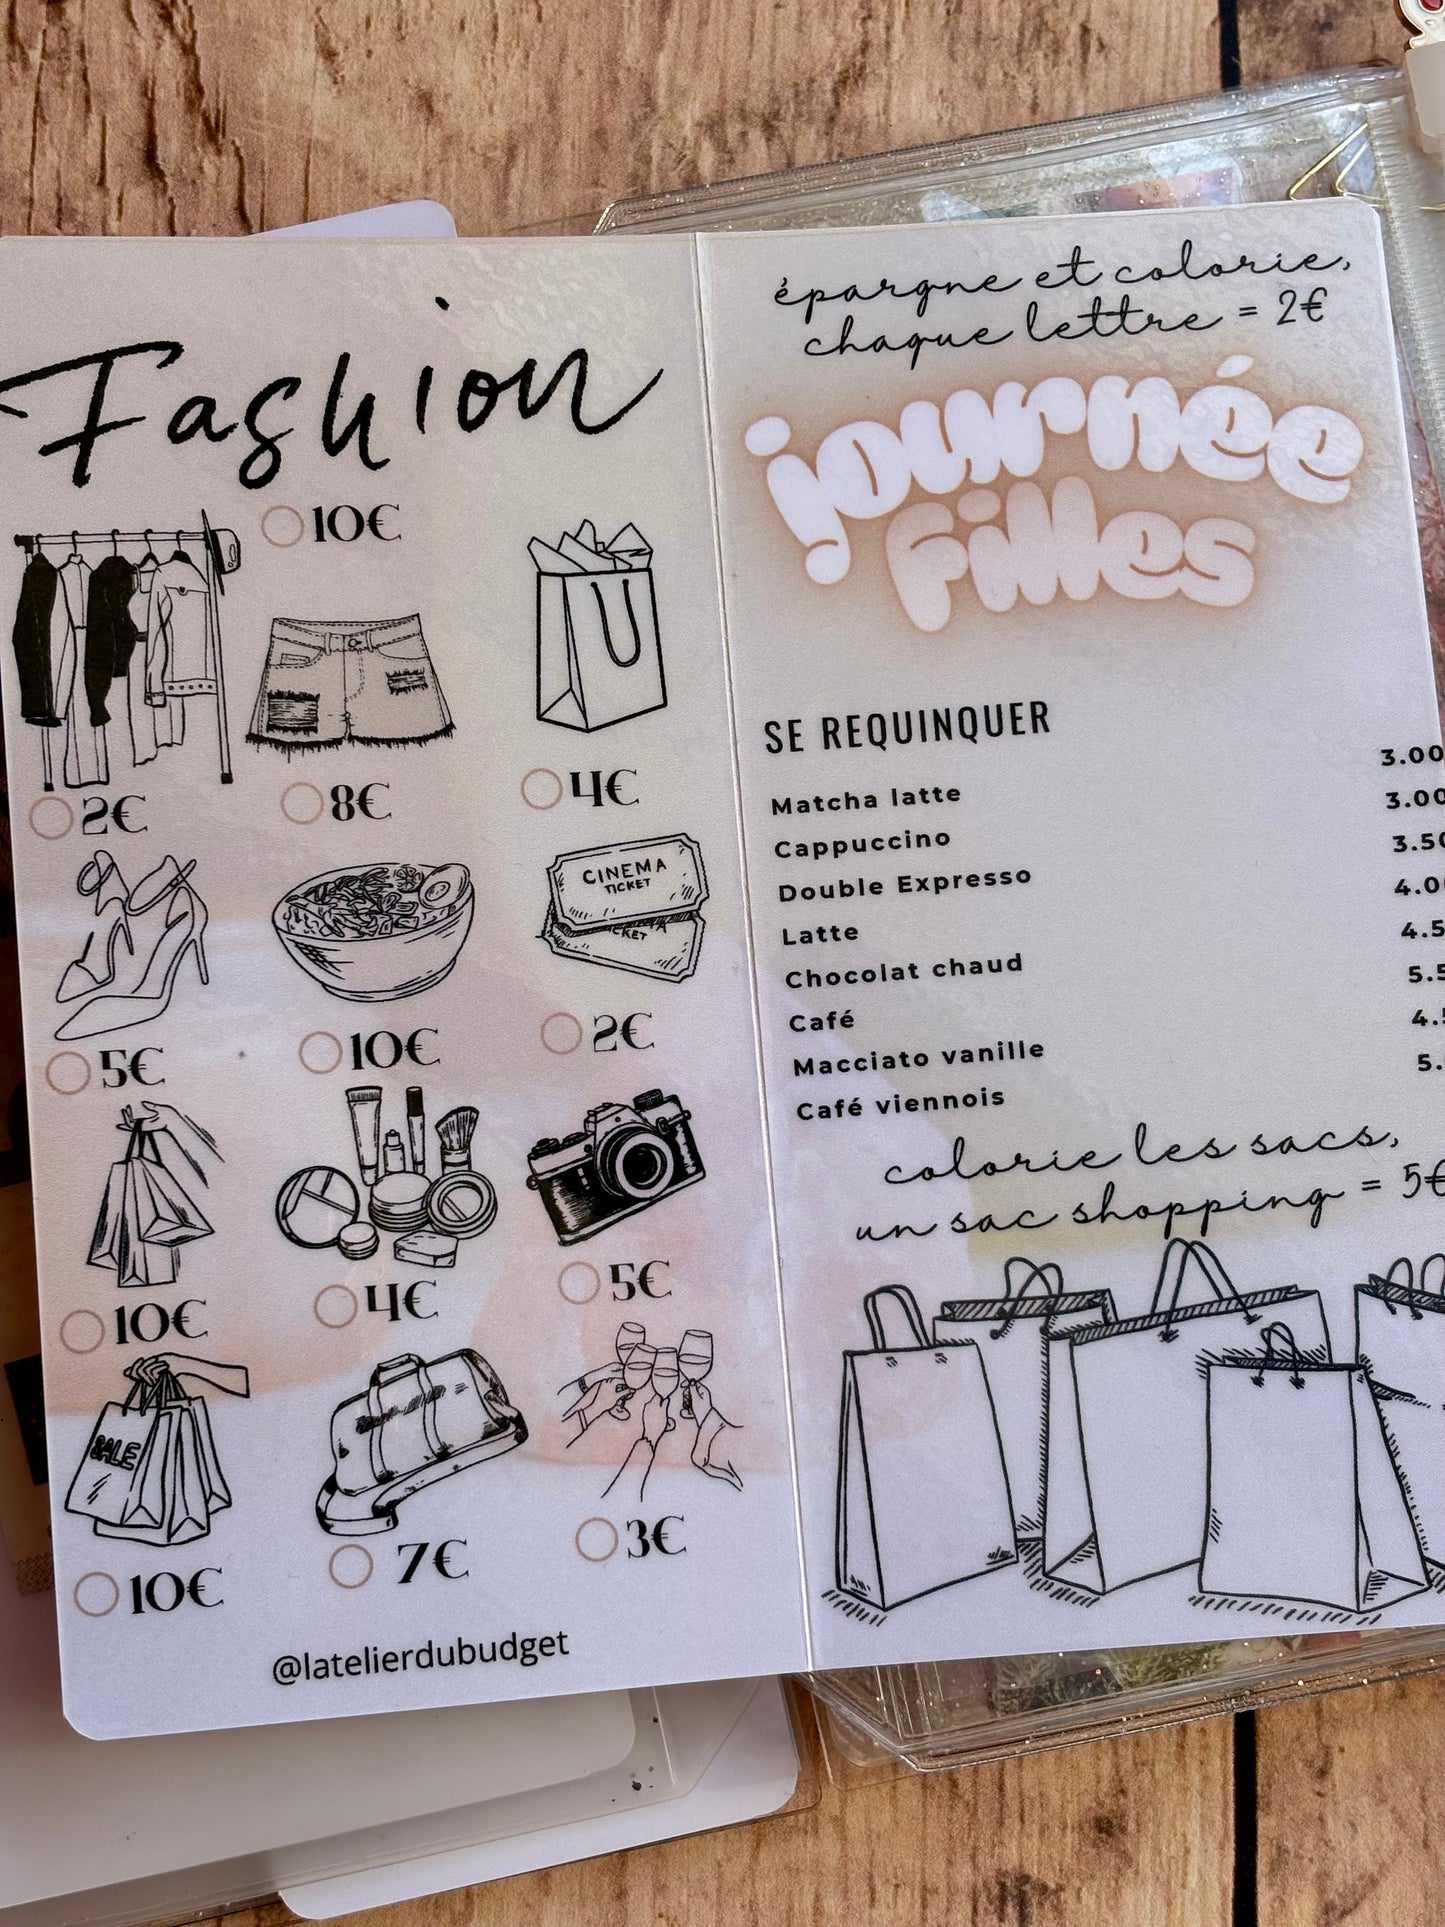 Fashion
10€
2€
8€
4€
CINEMA
TICKET
5€
10€
2€
10€
4€
5€
SALE
10€
7€
3€
@latelierdubudget
épargne et colorie,
chaque lettre = 2€
journée
filles
SE REQUINQUER
Matcha latte 3.00
Cappuccino 3.00
Double Expresso 3.50
Latte 4.00
Chocolat chaud 4.5
Café 5.5
Macciato vanille 4.5
Café viennois 5.
colorie les sacs,
un sac shopping = 5€